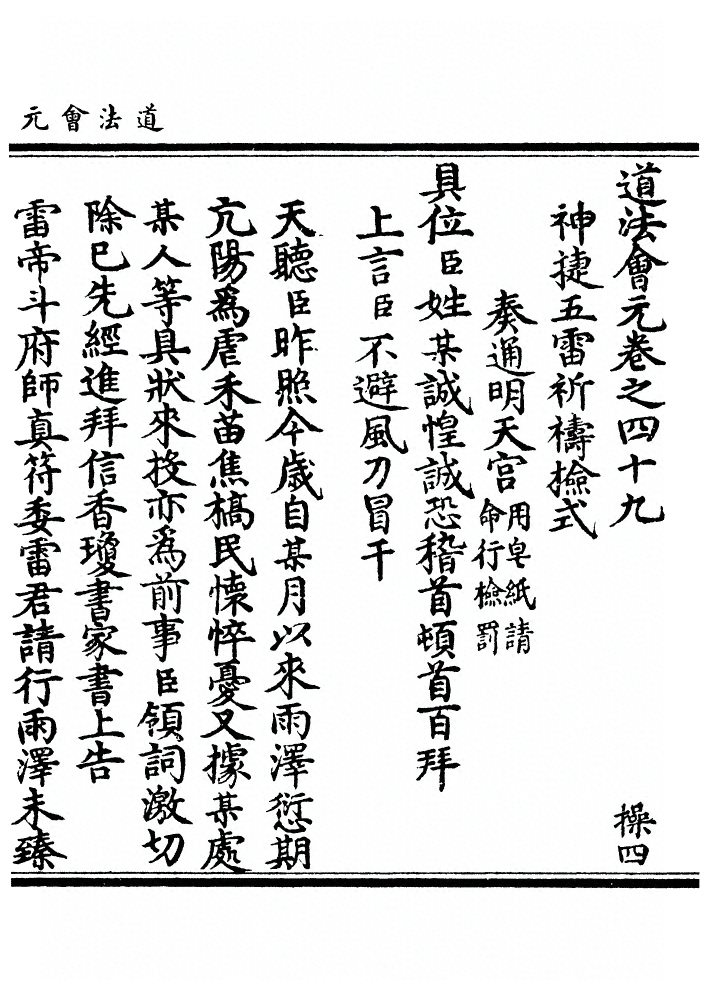 道法會元
道法會元卷之四十九 操四
神捷五雷祈禱撿式
奏通明天宮用皂紙請命行檢罰
具位臣姓某誠惶誠恐稽首頓首百拜
上言臣不避風刀冒干
天聽臣昨照今歲自某月以來雨澤愆期
亢陽爲虐禾苗焦槁民懷悴憂又據某處
某人等具狀來投亦爲前事臣領詞激切
除已先經進拜信香瓊書家書上告
雷帝斗府師真符委雷君請行雨澤未臻